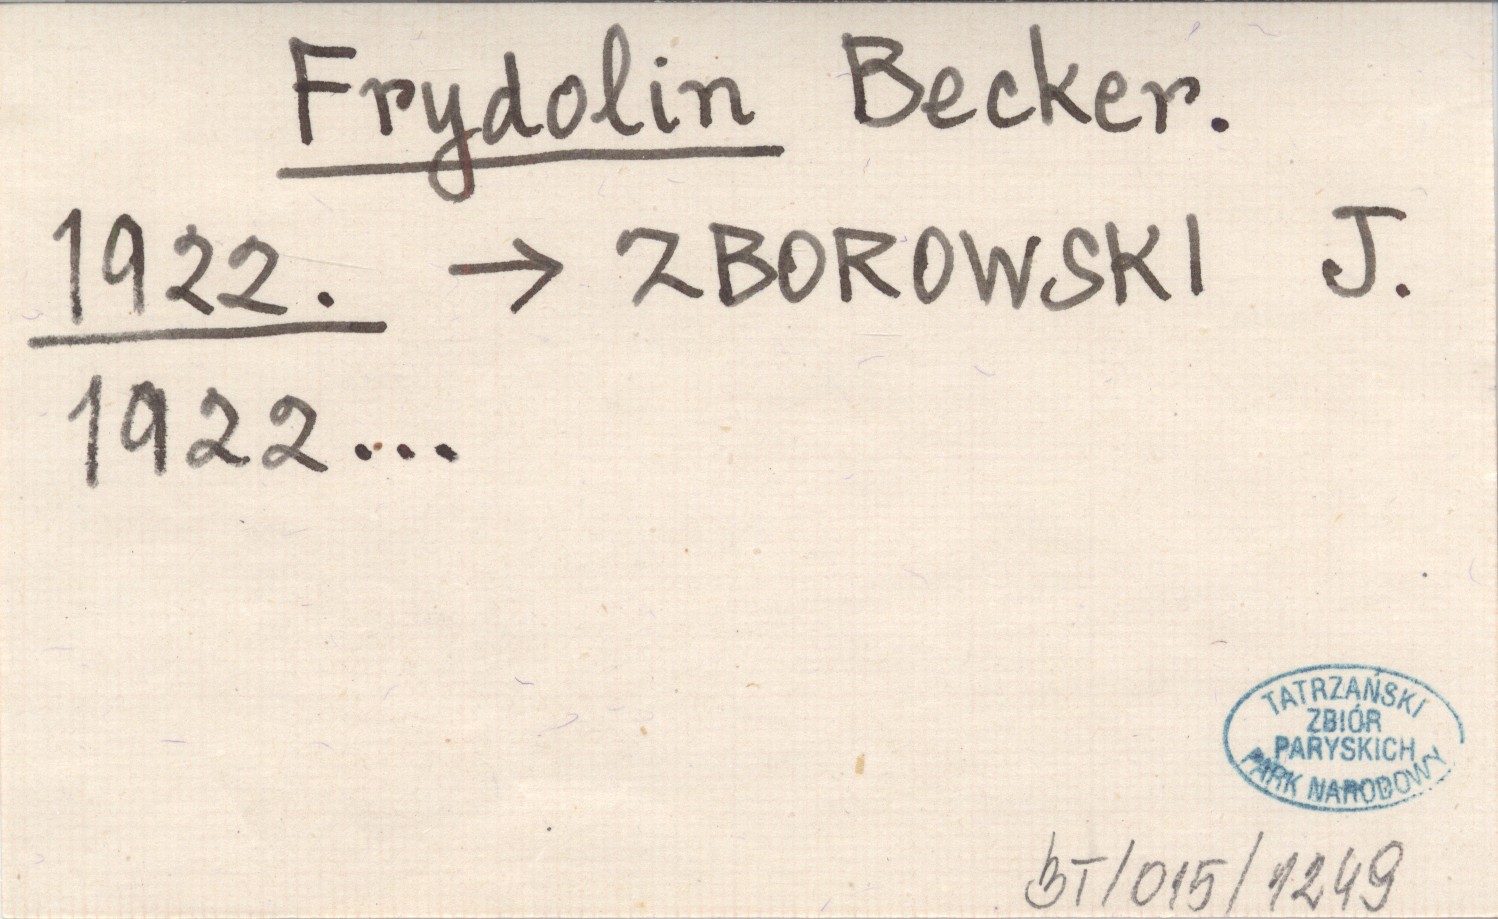 Frydolin Becker.
1922. → ZBOROWSKI J.
1922...
TATRZAŃSKI
ZBIÓR
PARYSKICH
PARK NARODOWY
BT/015/1249